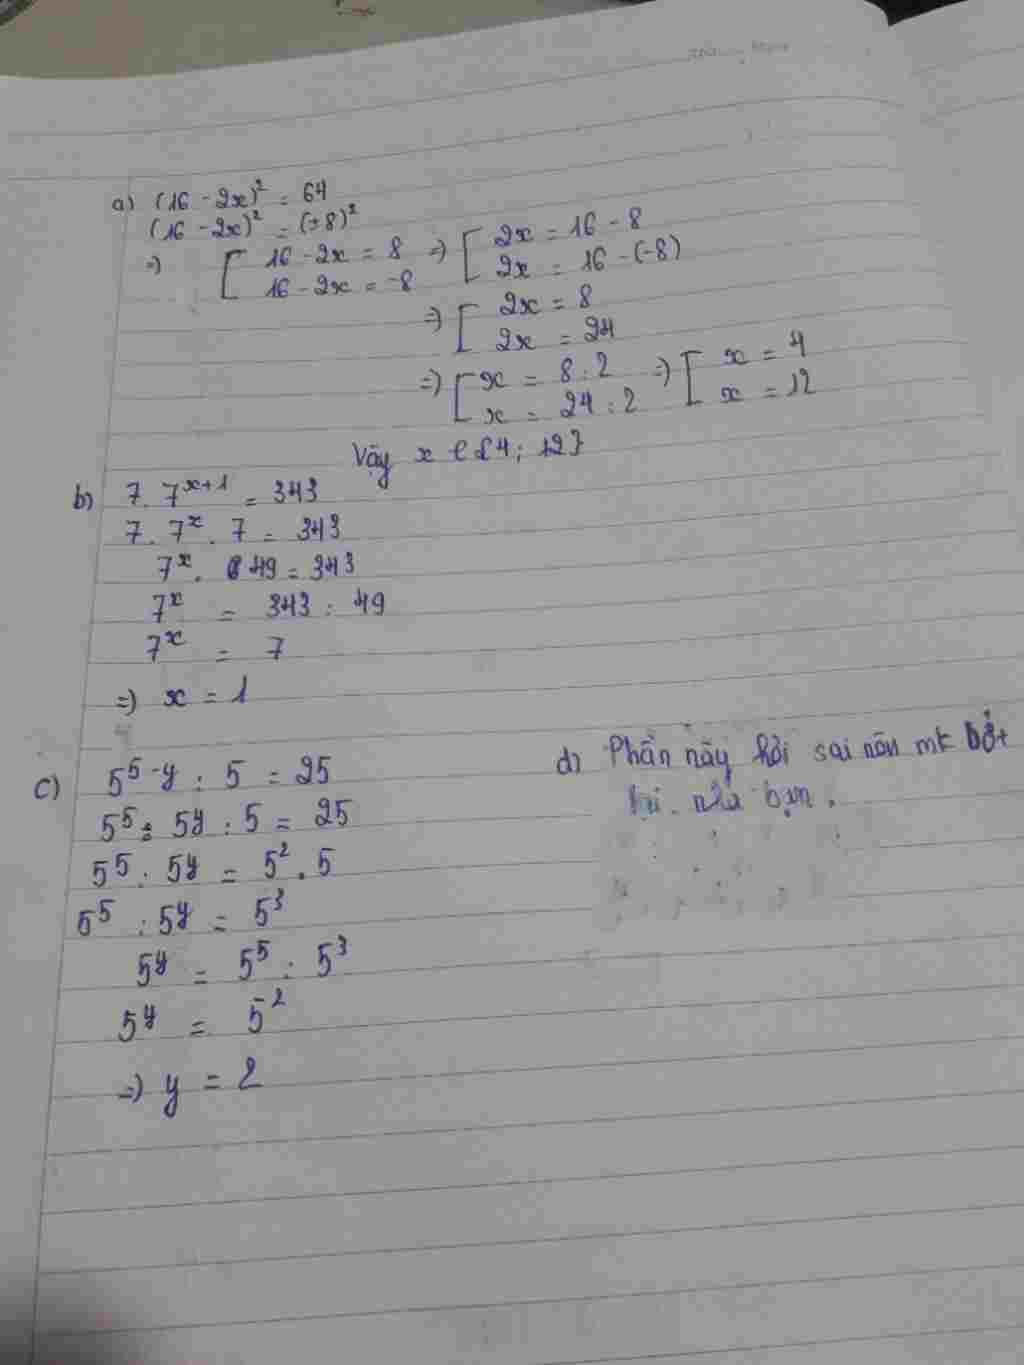 a) (16 - 2x)² = 64
(16 - 2x)² = (±8)²
=) [ 16 - 2x = 8 =) [ 2x = 16 - 8
16 - 2x = -8 2x = 16 - (-8)
=) [ 2x = 8
2x = 24
=) [ x = 8 : 2 =) [ x = 4
x = 24 : 2 x = 12
Vậy x ∈ {4; 12}
b) 7 . 7^{x+1} = 343
7 . 7^x . 7 = 343
7^x . 49 = 343
7^x = 343 : 49
7^x = 7
=) x = 1
c) 5^{5-y} : 5 = 25
5⁵ : 5^y : 5 = 25
5⁵ : 5^y = 5² . 5
5⁵ : 5^y = 5³
5^y = 5⁵ : 5³
5^y = 5²
=) y = 2
d) Phần này hơi sai nên mk
nha bạn.